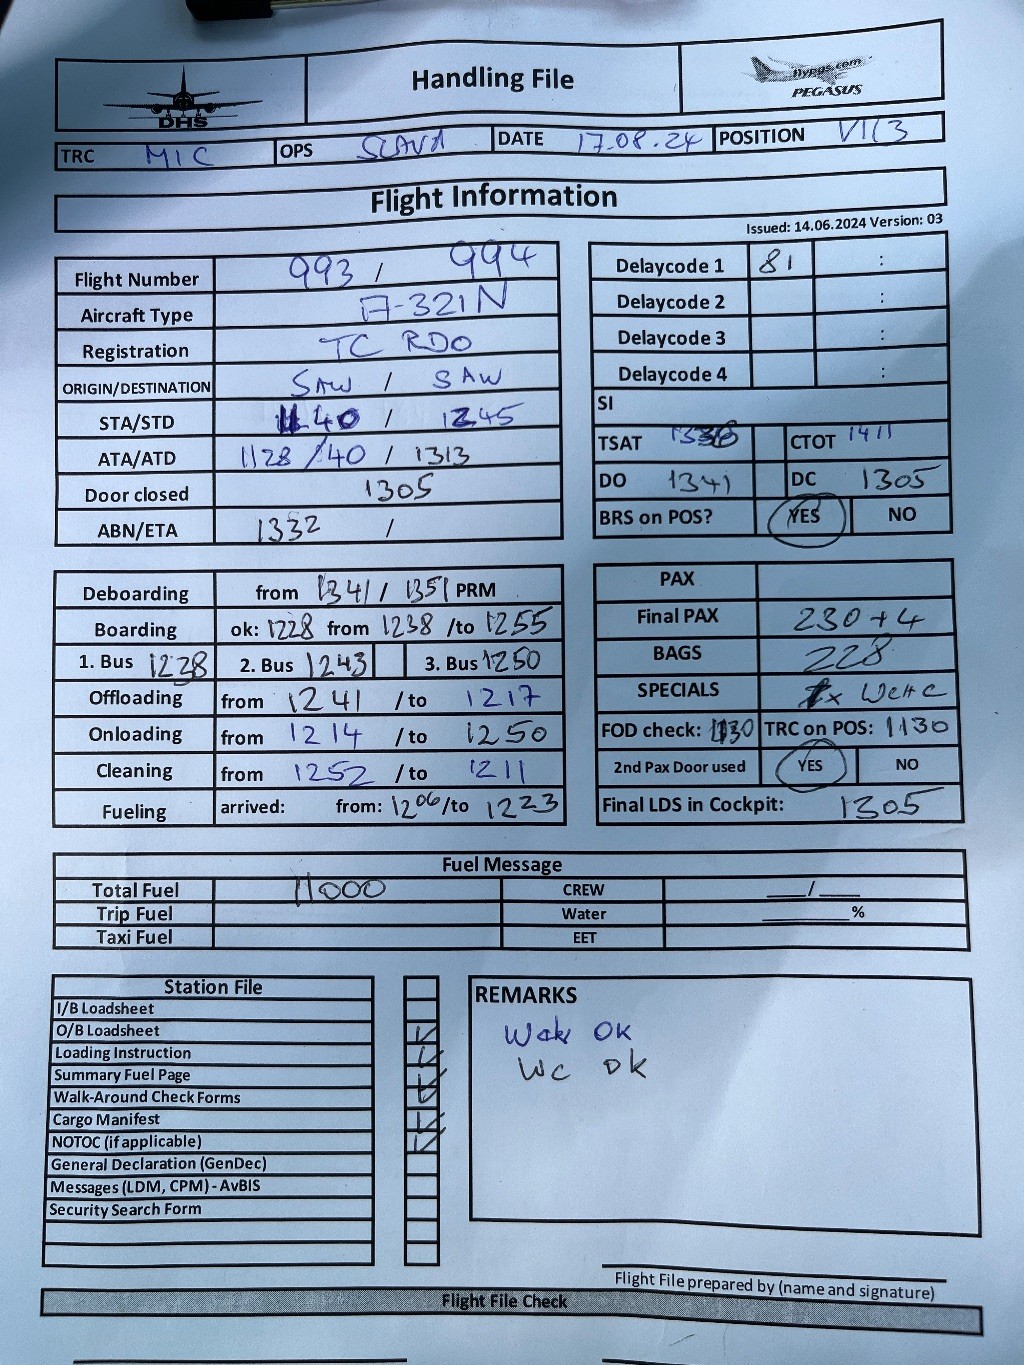 DHS
Handling File
flypgs.com
PEGASUS
TRC MIC OPS SLAVA DATE 17.08.24 POSITION V113
Flight Information
Issued: 14.06.2024 Version: 03
Flight Number 993 / 994
Aircraft Type A-321N
Registration TC RDO
ORIGIN/DESTINATION SAW / SAW
STA/STD 1140 / 1245
ATA/ATD 1128 /40 / 1313
Door closed 1305
ABN/ETA 1332 /
Delaycode 1 81 :
Delaycode 2 :
Delaycode 3 :
Delaycode 4 :
SI
TSAT CTOT 1411
DO 1341 DC 1305
BRS on POS? YES NO
Deboarding from 1341 / 1351 PRM
Boarding ok: 1228 from 1238 /to 1255
1. Bus 1228 2. Bus 1243 3. Bus 1250
Offloading from 1241 /to 1217
Onloading from 1214 /to 1250
Cleaning from 1252 /to 1211
Fueling arrived: from: 1206 /to 1223
PAX
Final PAX 230+4
BAGS 228
SPECIALS 1x WCHC
FOD check: 1130 TRC on POS: 1130
2nd Pax Door used YES NO
Final LDS in Cockpit: 1305
Fuel Message
Total Fuel 11000 CREW __/__
Trip Fuel Water ______%
Taxi Fuel EET
Station File
I/B Loadsheet
O/B Loadsheet
Loading Instruction
Summary Fuel Page
Walk-Around Check Forms
Cargo Manifest
NOTOC (if applicable)
General Declaration (GenDec)
Messages (LDM, CPM) - AvBIS
Security Search Form
REMARKS
OK
WC OK
Flight File prepared by (name and signature)
Flight File Check